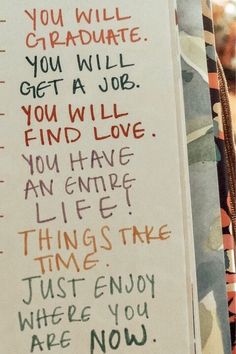 YOU WILL
GRADUATE.
YOU WILL
GET A JOB.
YOU WILL
FIND LOVE.
YOU HAVE
AN ENTIRE
LIFE!
THINGS TAKE
TIME.
JUST ENJOY
WHERE YOU
ARE NOW.